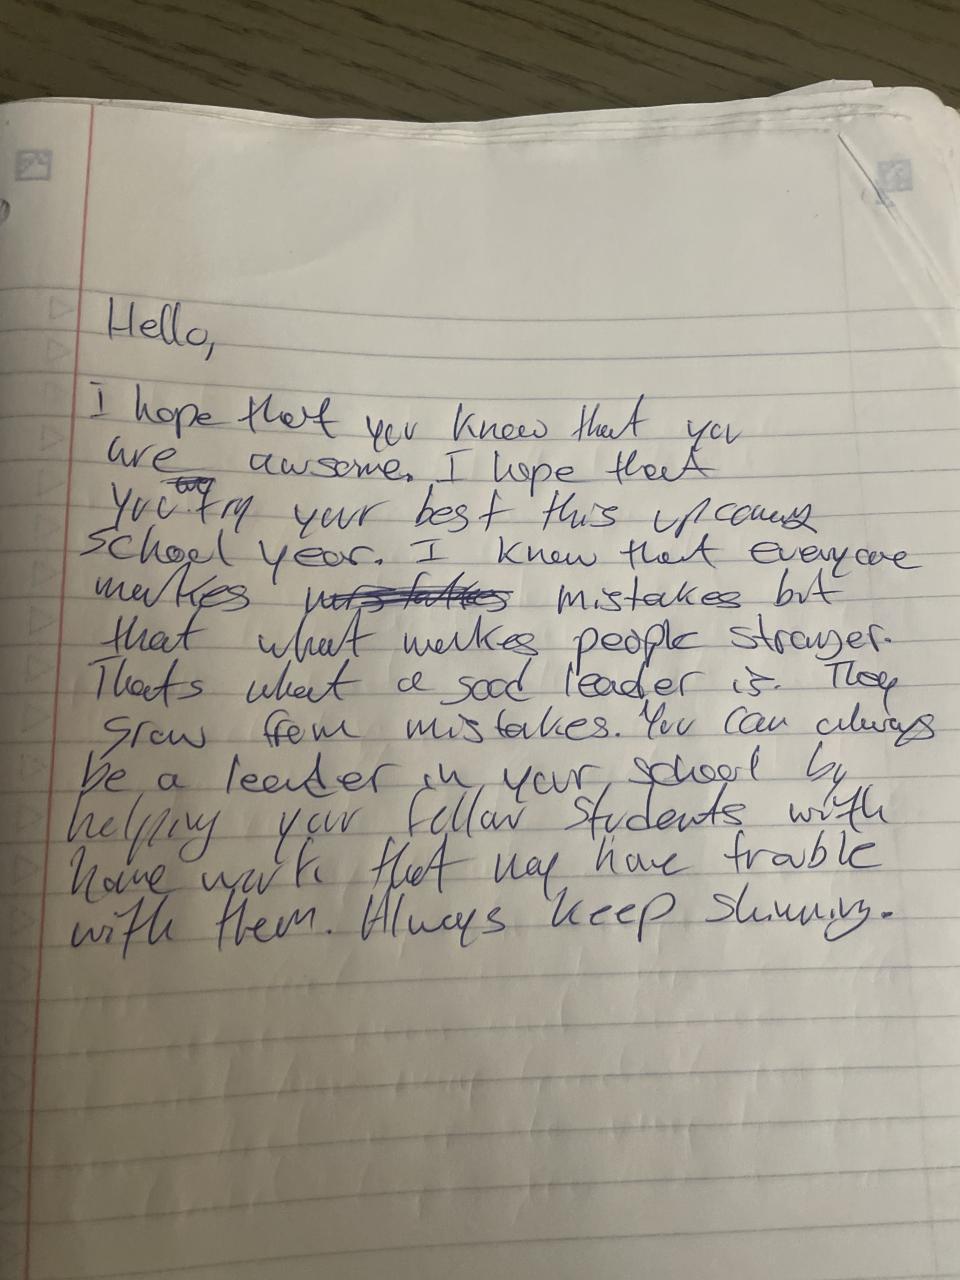 Hello,
I hope that you know that you
are awsome. I hope that
you try your best this upcoming
school year. I know that everyone
makes mistakes but
that what makes people stronger.
Thats what a good leader is. They
grow from mistakes. You can always
be a leader in your school by
helping your fellow students with
home work that may have trouble
with them. Always keep shinning.